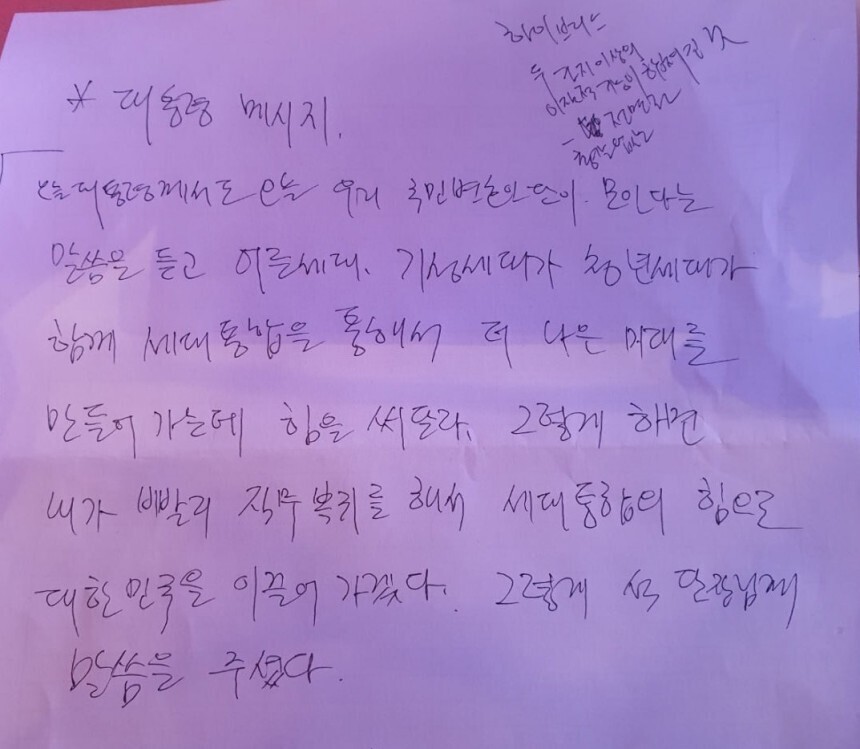 하이브리스
두 가지 이상의
* 대통령 메시지.
오늘 대통령께서도 오늘 우리 국민변호인단이 모인다는
말씀을 듣고 어른세대, 기성세대가 청년세대가
함께 세대통합을 통해서 더 나은 미래를
만들어 가는데 힘을 써달라, 그렇게 하면
내가 빨리 직무복귀를 해서 세대통합의 힘으로
대한민국을 이끌어 가겠다. 그렇게 석 단장님께
말씀을 주셨다.